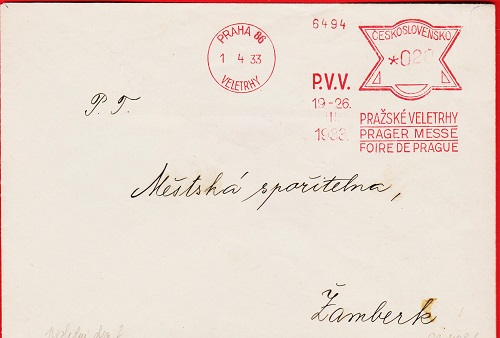 6494
PRAHA 86
1 4 33
VELETRHY
ČESKOSLOVENSKO
*020
P.V.V.
19-26.
III
1933.
PRAŽSKÉ VELETRHY
PRAGER MESSE
FOIRE DE PRAGUE
P. T.
Městská spořitelna,
Žamberk